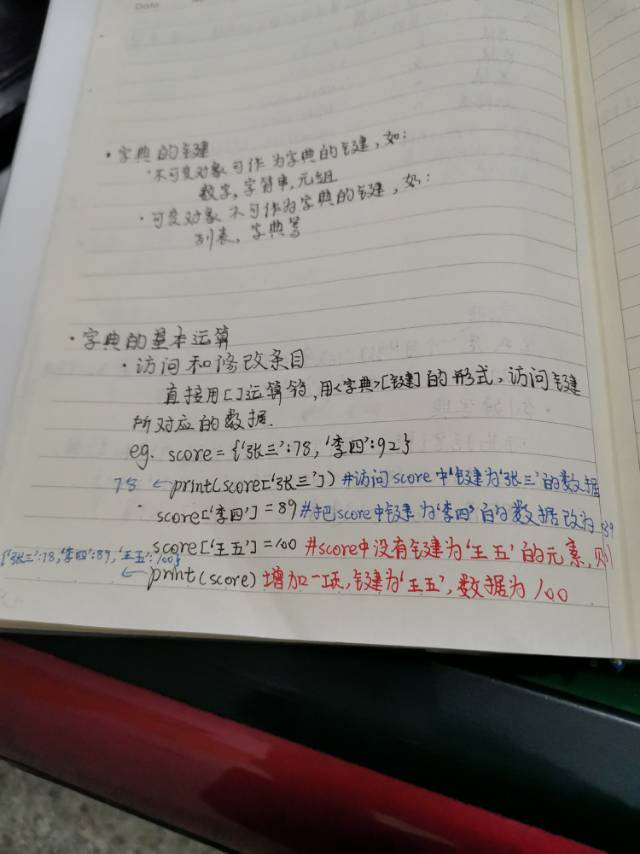 Date
· 字典的键
· 不可变对象可作为字典的键，如：
数字，字符串，元组
· 可变对象不可作为字典的键，如：
列表，字典等
· 字典的基本运算
· 访问和修改条目
直接用[]运算符，用<字典>[键]的形式，访问键
所对应的数据.
eg. score = {'张三':78, '李四':92}
78 ← print(score['张三']) #访问score中键为'张三'的数据
score['李四'] = 89 #把score中键为'李四'的数据改为89
score['王五'] = 100 #score中没有键为'王五'的元素，则
{'张三':78,'李四':89,'王五':100}
← print(score) 增加一项，键为'王五'，数据为100